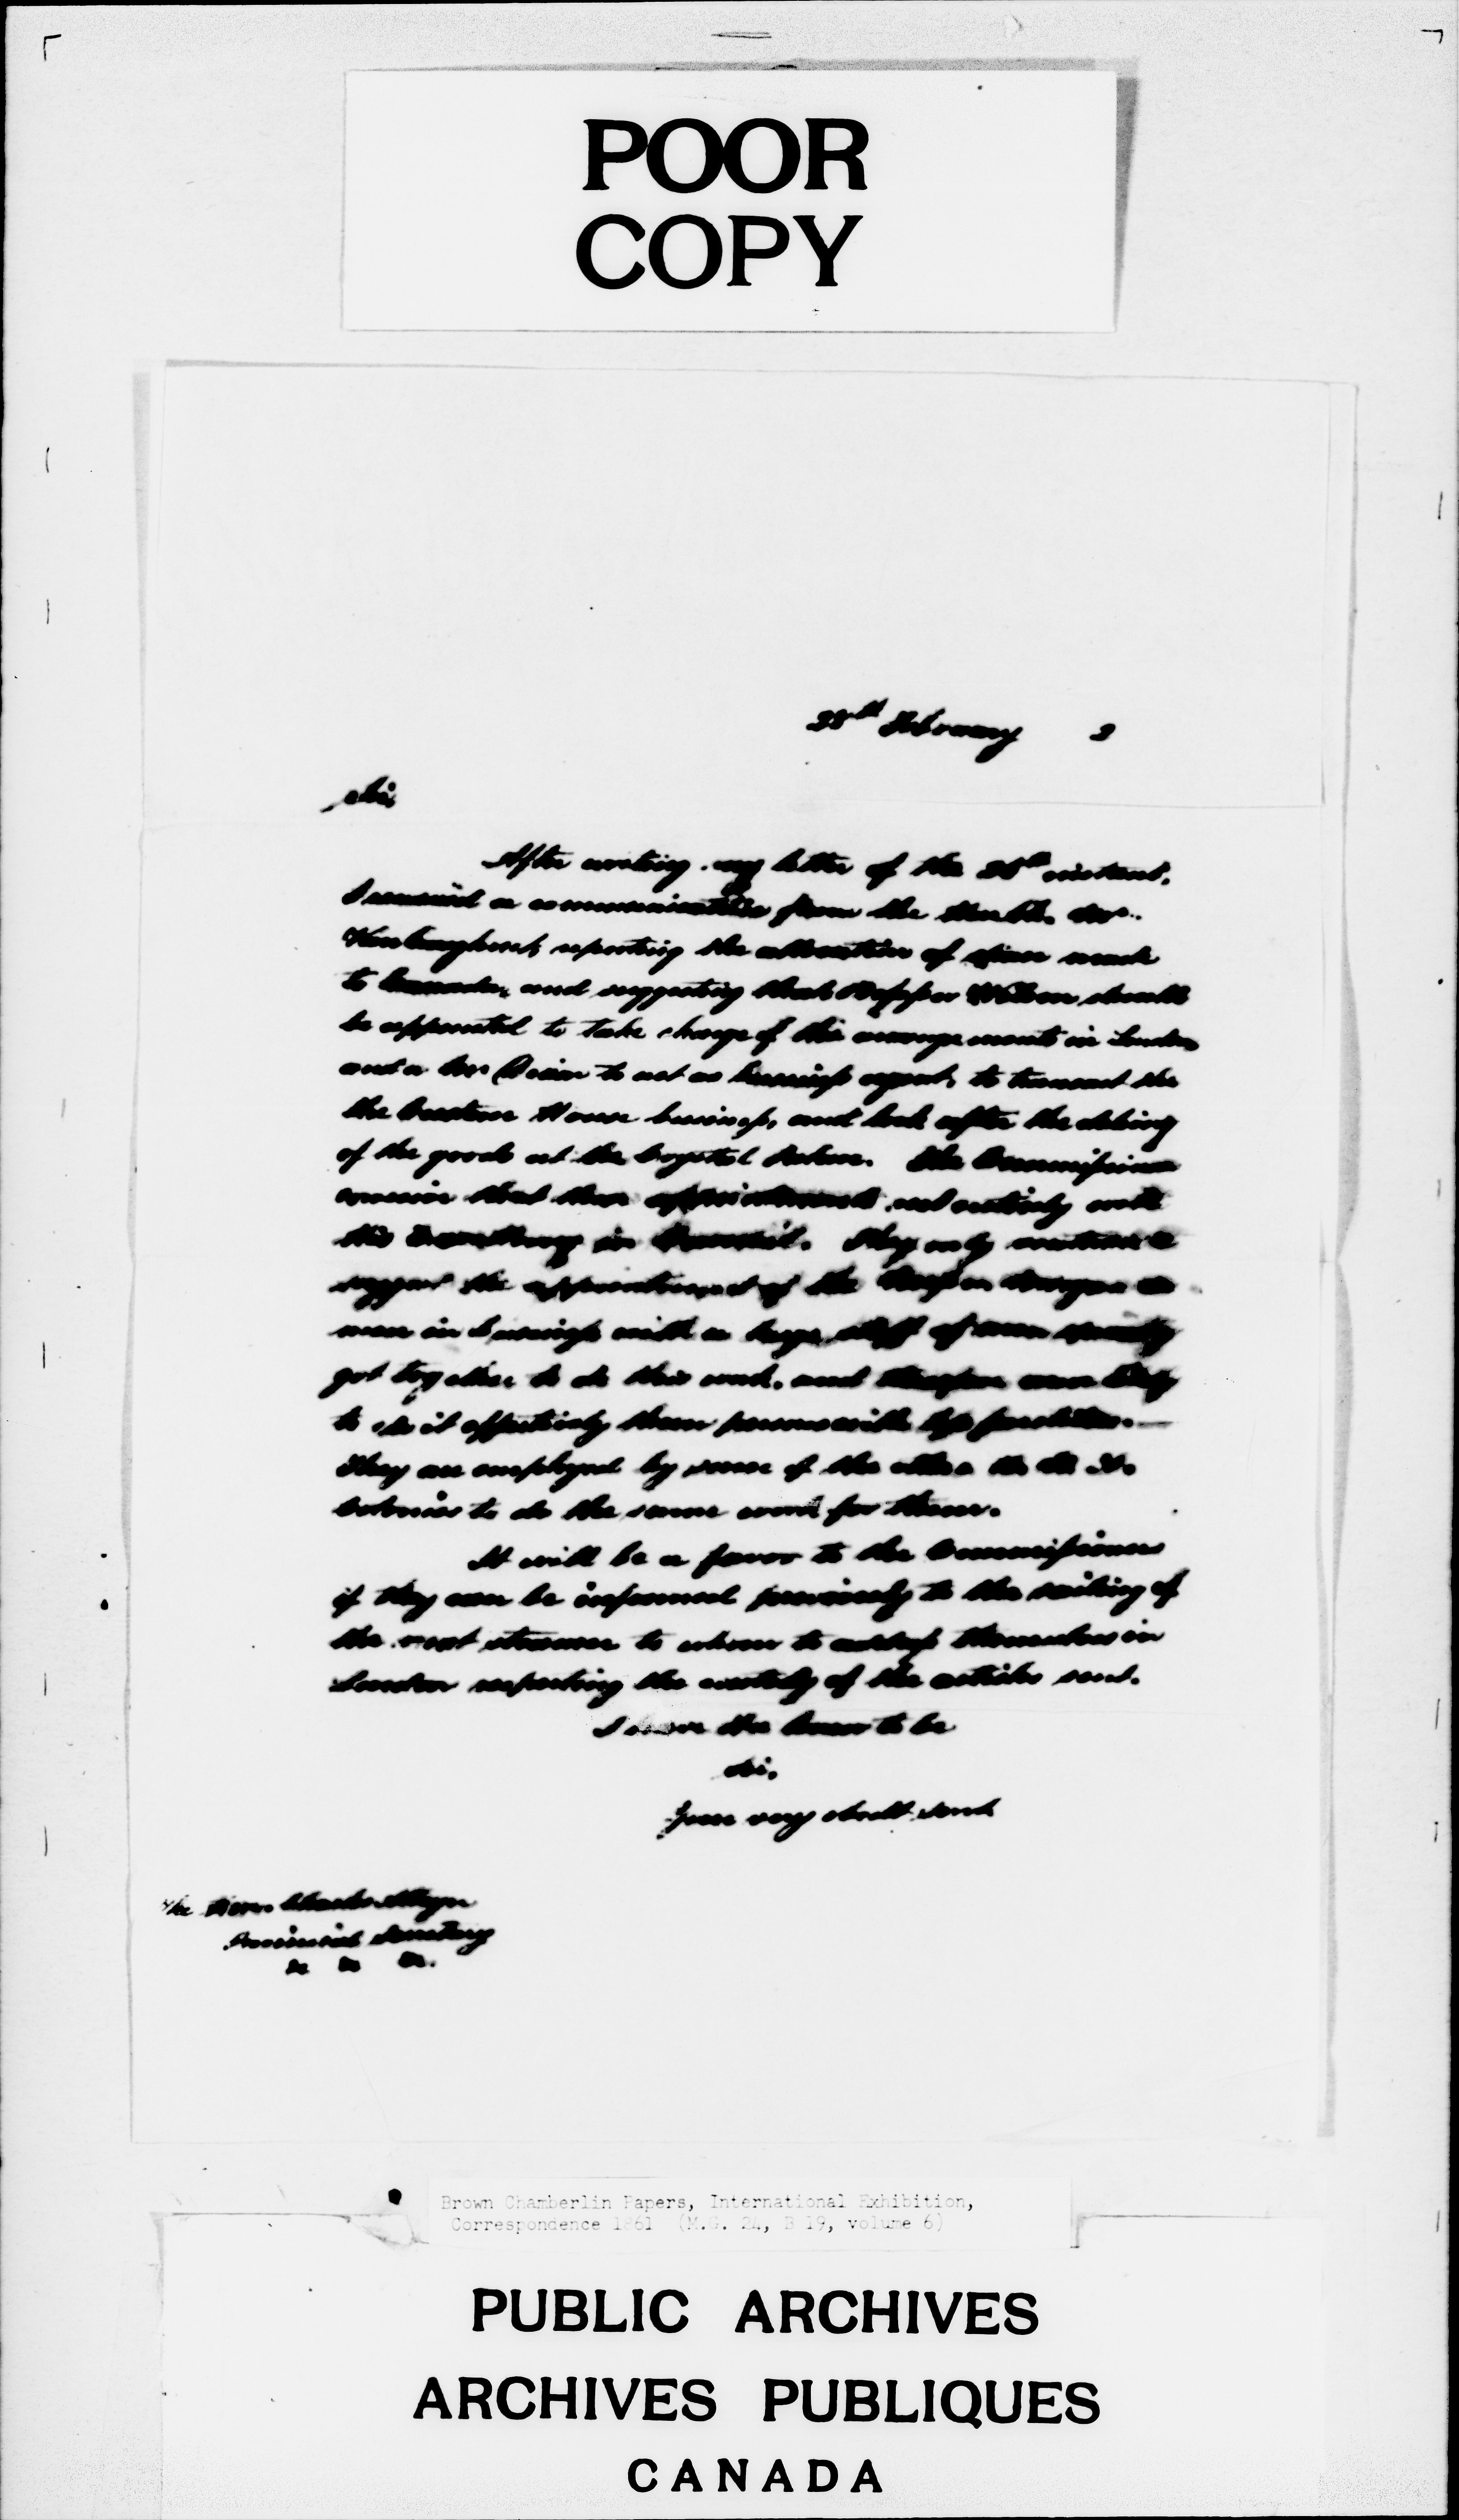 POOR
COPY
28th February 2
Sir,
After writing my letter of the 28th instant,
I received a communication from the Honble. Mr.
Vankoughnet, reporting the allocation of space made
to Canada, and suggesting that Wilson should
be appointed to take charge of the arrangements in London
and a Mr to act as business agent, to transact the
the Custom House business, and look after the
of the goods at the Crystal Palace. The Commissioners
that these appointments rest entirely with
His Excellency in Council. They only venture to
suggest the appointment of the as
men in business with a large staff of men
got together to do this work, and
to do it effectively than persons with less facilities.
They are employed by some of the other
Colonies to do the same work for them.
It will be a favor to the Commissioners
if they can be informed previously to the sailing of
the next steamer to whom to address themselves in
London respecting the custody of the articles sent.
I have the honor to be
Sir,
Your very obedt. Servt.
The Honr. Charles Alleyn
Provincial Secretary
&c &c &c.
Brown Chamberlin Papers, International Exhibition,
Correspondence 1861 (M.G. 24, B 19, volume 6)
PUBLIC ARCHIVES
ARCHIVES PUBLIQUES
CANADA